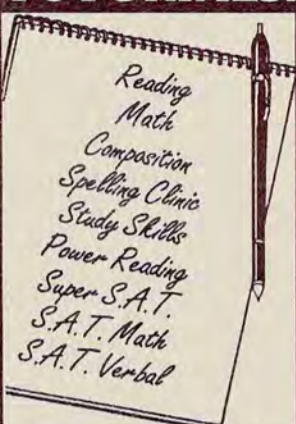 Reading
Math
Composition
Spelling Clinic
Study Skills
Power Reading
Super S.A.T.
S.A.T. Math
S.A.T. Verbal